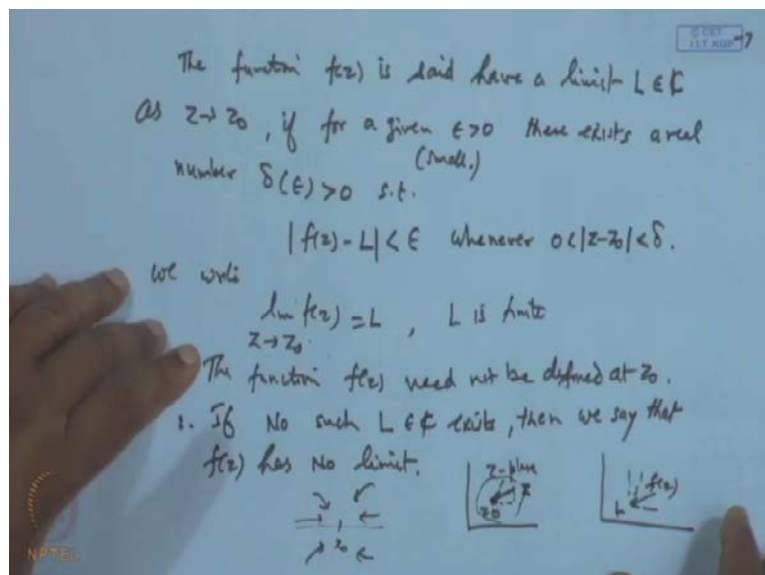 © CET
I.I.T. KGP
-7
The function f(z) is said have a limit L ∈ ₵
as z→z₀, if for a given ϵ>0 there exists a real
(small.)
number δ(ϵ)>0 s.t.
|f(z)-L|<ϵ whenever 0<|z-z₀|<δ.
we write
lim f(z) = L , L is finite
z→z₀
The function f(z) need not be defined at z₀.
1. If No such L ∈ ₵ exists, then we say that
f(z) has No limit.
z-plane
z
z₀
f(z)
L
z₀
NPTEL